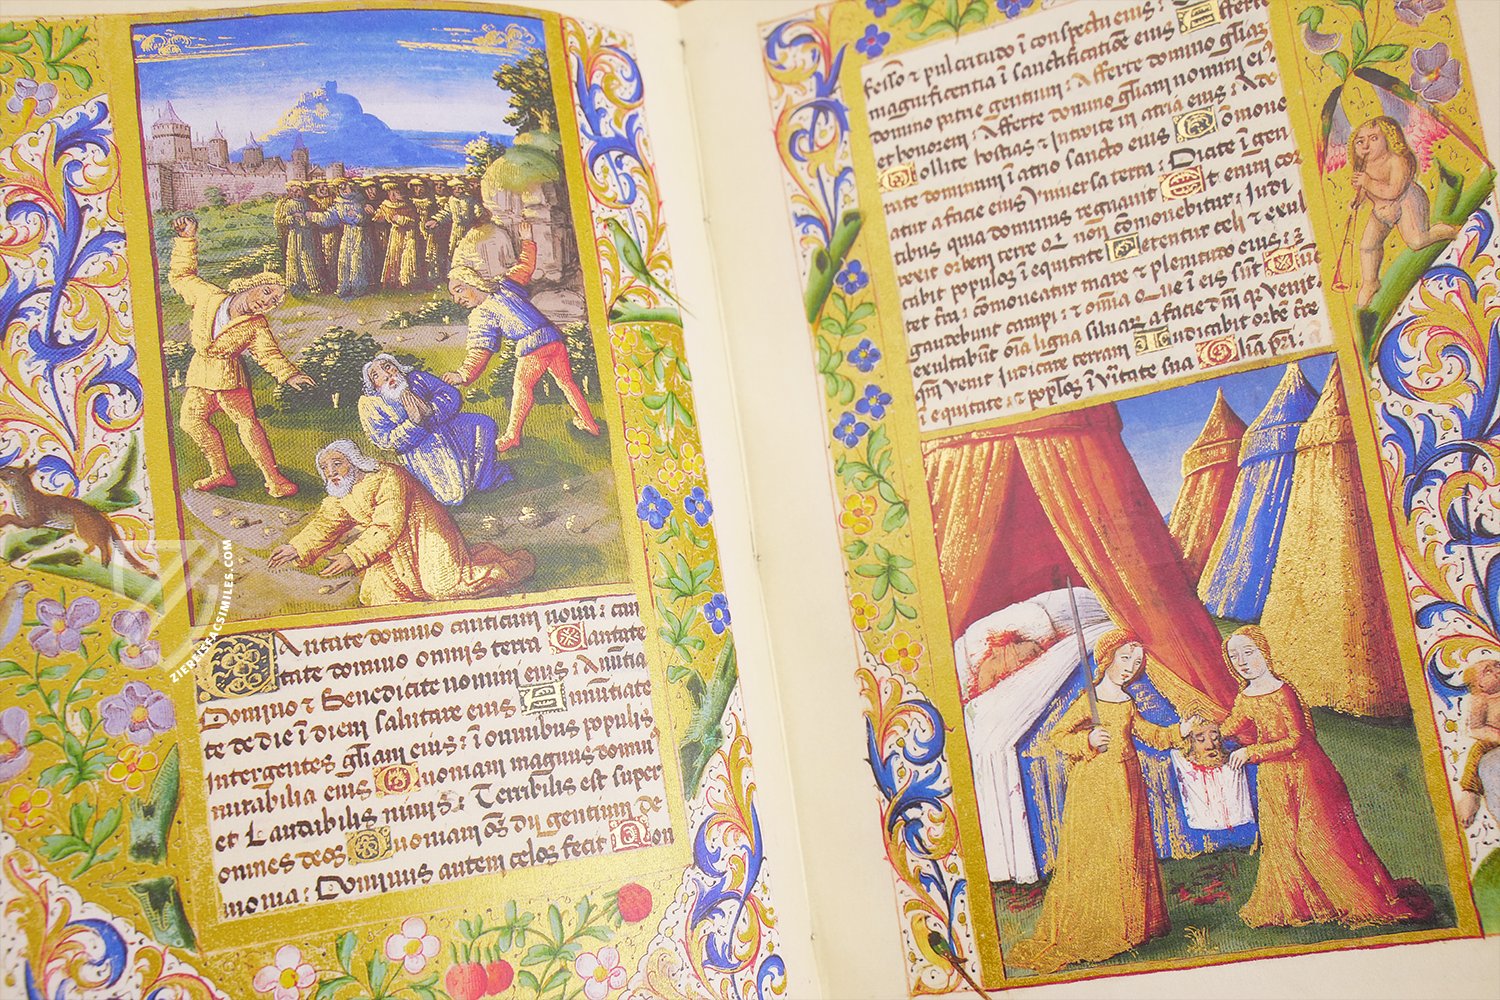 Antate domino canticum nouũ: can
tate domino omnis terra Cantate
Domino ⁊ Benedicite nomini eius: Anũtia
te de die ĩ diem salutare eius Annũtiate
Inter gentes gl̃iam eius: ĩ omnibus populis
mirabilia eius Quoniam magnus domin⁹
et Laudabilis nimis: Terribilis est super
omnes deos Quoniam oẽs dij gentium de
monia: Dominus autem celos fecit Con
fessio ⁊ pulcritudo ĩ conspectu eius: Afferte
magnificentia ĩ sanctificatiõe eius
domino patrie gentium: Afferte domino gl̃iaz
et honorem: Afferte domino gl̃iam nomini ei⁹
Tollite hostias ⁊ Introite in atria eius: Ado
rate dominum ĩ atrio sancto eius Cõmoue
atur a facie eius Vniuersa terra: Dicite ĩ gen
tibus quia dominus regnauit Et enim cor
rexit orbem terre qr̃ nõ cõmouebitur: Iudi
cabit populos ĩ equitate Letentur celi ⁊ exul
tet tr̃a: cõmoueatur mare ⁊ plenitudo eius:
gaudebunt campi: ⁊ om̃ia Que ĩ eis sũt
exultabũt oĩa ligna siluar a facie dn̄i qr̃ venit:
qm̃ venit Iudicare terram Iudicabit orbẽ tr̃e
ĩ equitate: ⁊ pop̃los ĩ vĩtate sua Gl̃ia pr̃i:
ZIEREISFACSIMILES.COM